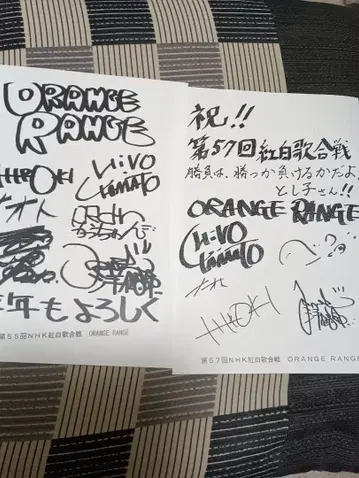 ORANGE
RANGE
HIROKI
HIRO
YAMATO
ナオト
年もよろしく
第55回NHK紅白歌合戦 ORANGE RANGE
祝!!
第57回紅白歌合戦
勝負は、勝つか負けるかだよ、
とし子さん!!
ORANGE RANGE
HIRO
YAMATO
ナオト
HIROKI
第57回NHK紅白歌合戦 ORANGE RANGE